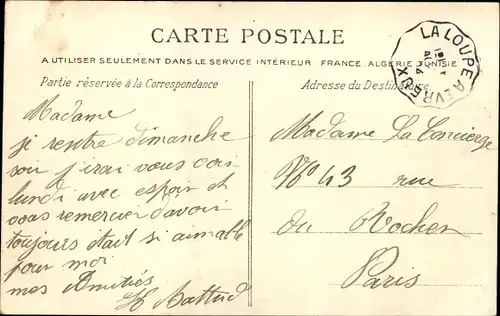 CARTE POSTALE
A UTILISER SEULEMENT DANS LE SERVICE INTÉRIEUR FRANCE, ALGÉRIE, TUNISIE
Partie réservée à la Correspondance
Adresse du Destinataire
LA LOUPE A EVREUX
Madame
je rentre dimanche
soir j'irai vous voir
lundi avec espoir et
vous remercier d'avoir
toujours était si aimable
pour moi
mes Amitiés
Madame La Concierge
No 43 rue
du Rocher
Paris